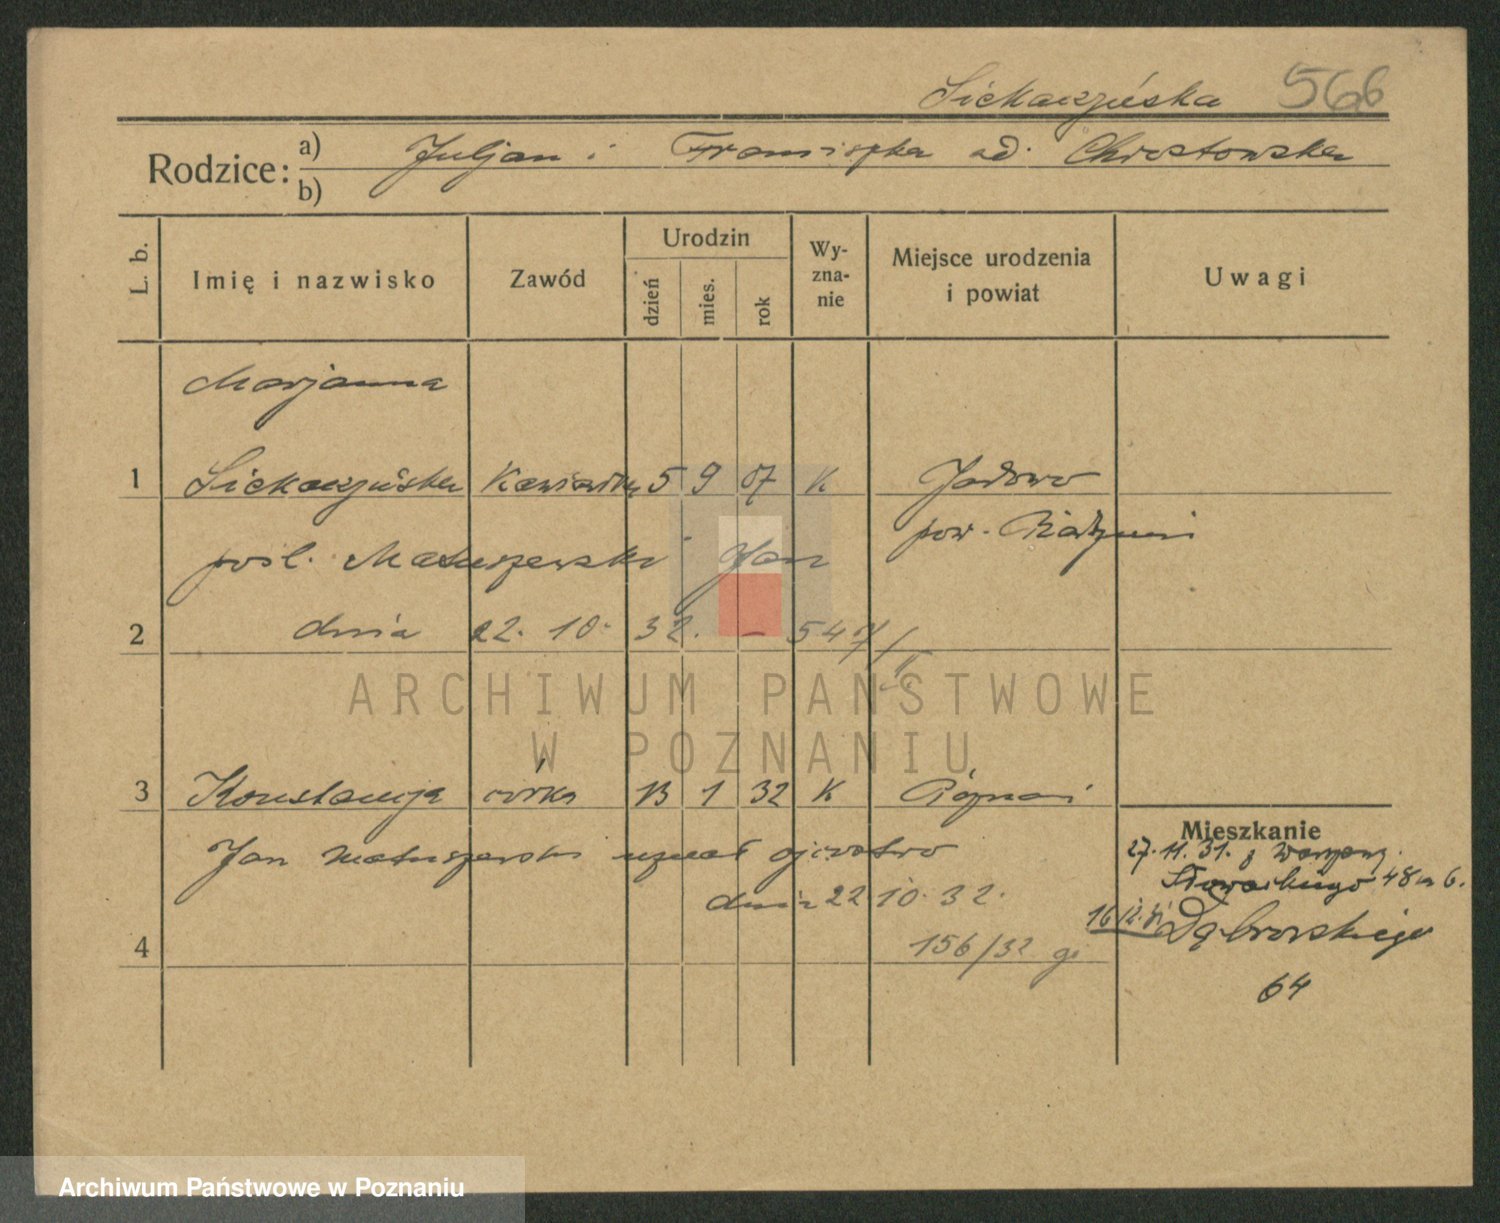 Siekaczyńska 566
Rodzice: a) Juljan i Franciszka od. Chrostowska
b)
L. b. Imię i nazwisko Zawód Urodzin dzień mies. rok Wy-zna-nie Miejsce urodzenia i powiat Uwagi
Marjanna
1 Siekaczyńska 5 9 07 K Jadowo
pow. Radzymin
pośl. Matuszewski Jan
2 dnia 22. 10. 32. – 547/
ARCHIWUM PAŃSTWOWE
W POZNANIU
3 Konstancja córka 13 1 32 K Poznań
Jan Matuszewski uznał ojcostwo
dnia 22 10. 32.
4 156/32
Mieszkanie
27. 11. 31. z Warszawy
Słowackiego 48 m 6.
Dąbrowskiego
64
Archiwum Państwowe w Poznaniu